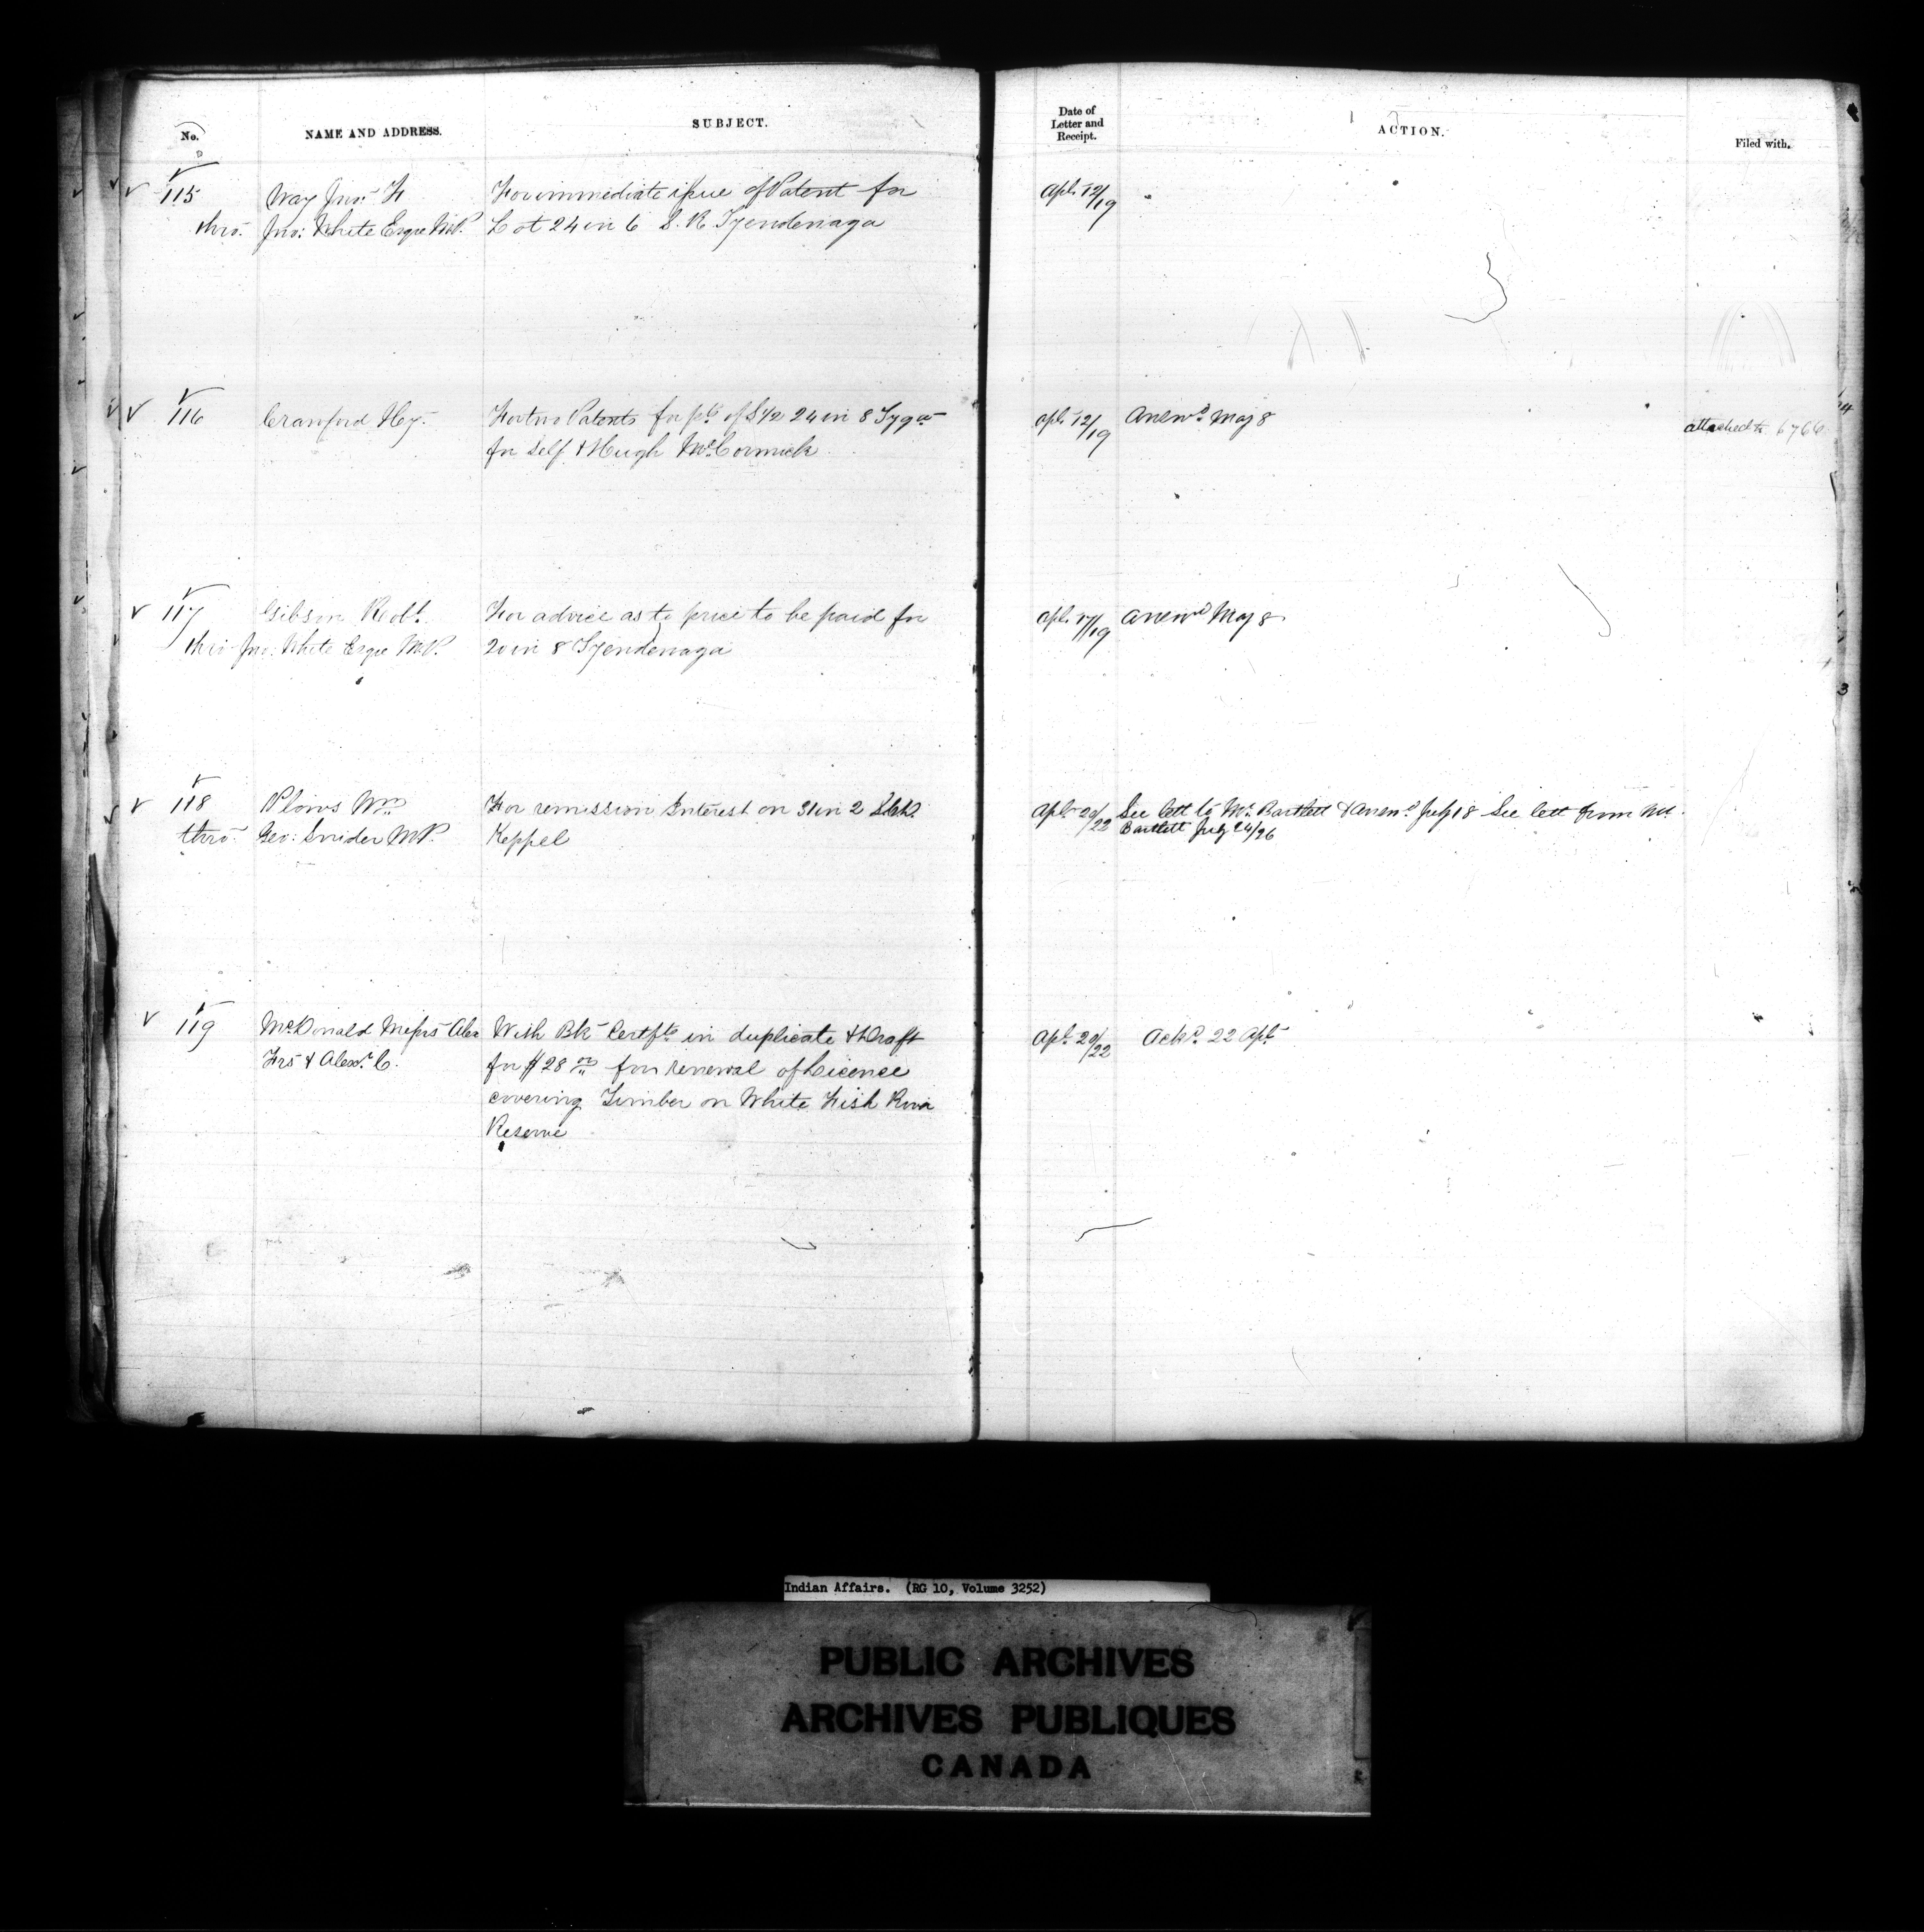 No.
NAME AND ADDRESS.
SUBJECT.
Date of
Letter and
Receipt.
ACTION.
Filed with.
115
Way Jno. F
For immediate issue of Patent for
Apl. 12/19
thro. Jno: White Esqre M.P.
Lot 24 in 6 S. R. Tyendenaga
116
Crawford Hy.
For two Patents for pts of S 1/2 24 in 8 Tyga
for Self & Hugh McCormick
Apl. 12/19
Answd May 8
attached to 6766
117
Gibson Robt.
For advice as to price to be paid for
thro Jno: White Esqre M.P.
20 in 8 Tyendenaga
Apl. 17/19
Answd May 8
118
Plows Wm
For remission Interest on 31 in 2
thro. Geo: Snider M.P.
Keppel
Apl. 20/22
See lett to Mr. Bartlett & answd July 18 See lett from Mr.
Bartlett July 24/26
119
McDonald Messrs Alex
Frs & Alexr. C.
With Bk Certfte in duplicate & Draft
for $28 00 for renewal of Licence
covering Timber on White Fish River
Reserve
Apl. 20/22
Ackd. 22 Apl
Indian Affairs. (RG 10, Volume 3252)
PUBLIC ARCHIVES
ARCHIVES PUBLIQUES
CANADA